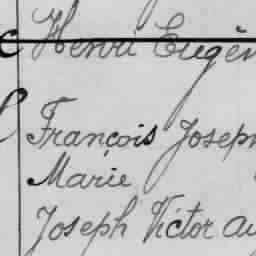 Henri Eugèn
François Joseph
Marie
Joseph Victor Au